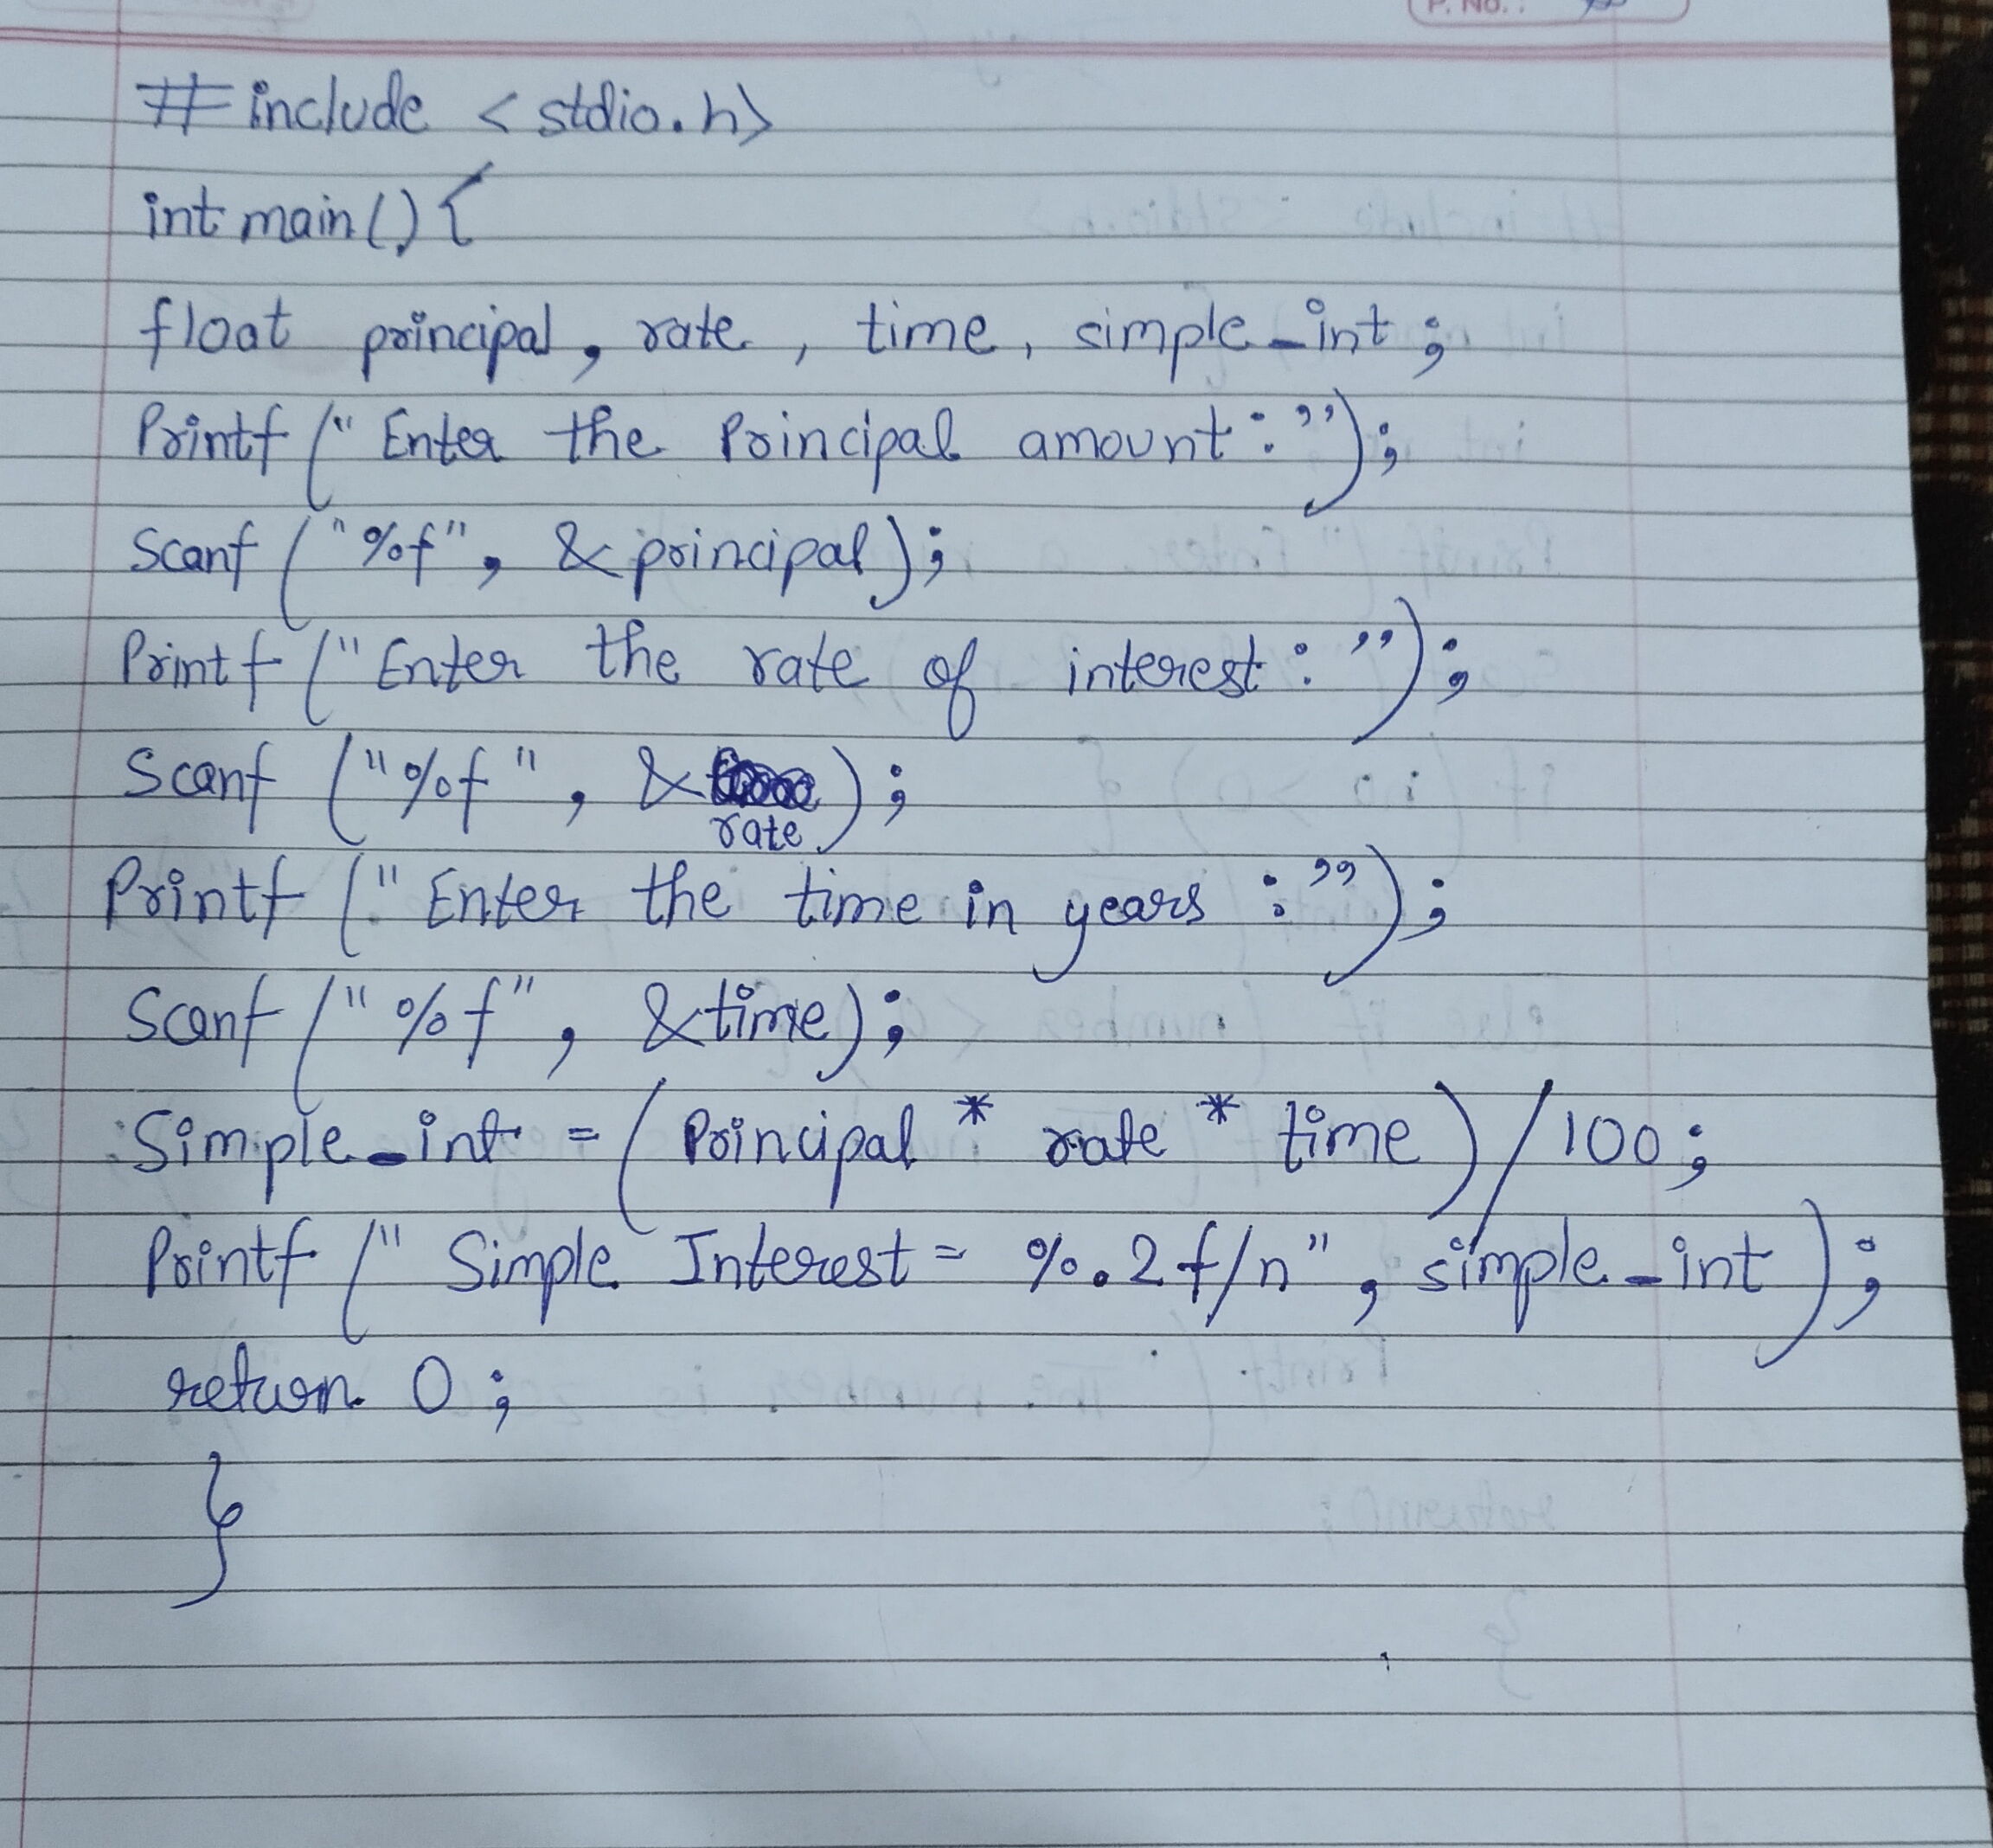 P. No. :
#include <stdio.h>
int main() {
float principal, rate, time, simple_int;
Printf ("Enter the Principal amount:");
Scanf ("%f", &principal);
Printf ("Enter the rate of interest:");
Scanf ("%f", &rate);
Printf ("Enter the time in years:");
Scanf ("%f", &time);
Simple_int = (Principal * rate * time)/100;
Printf ("Simple Interest = %.2f/n", simple_int);
return 0;
}